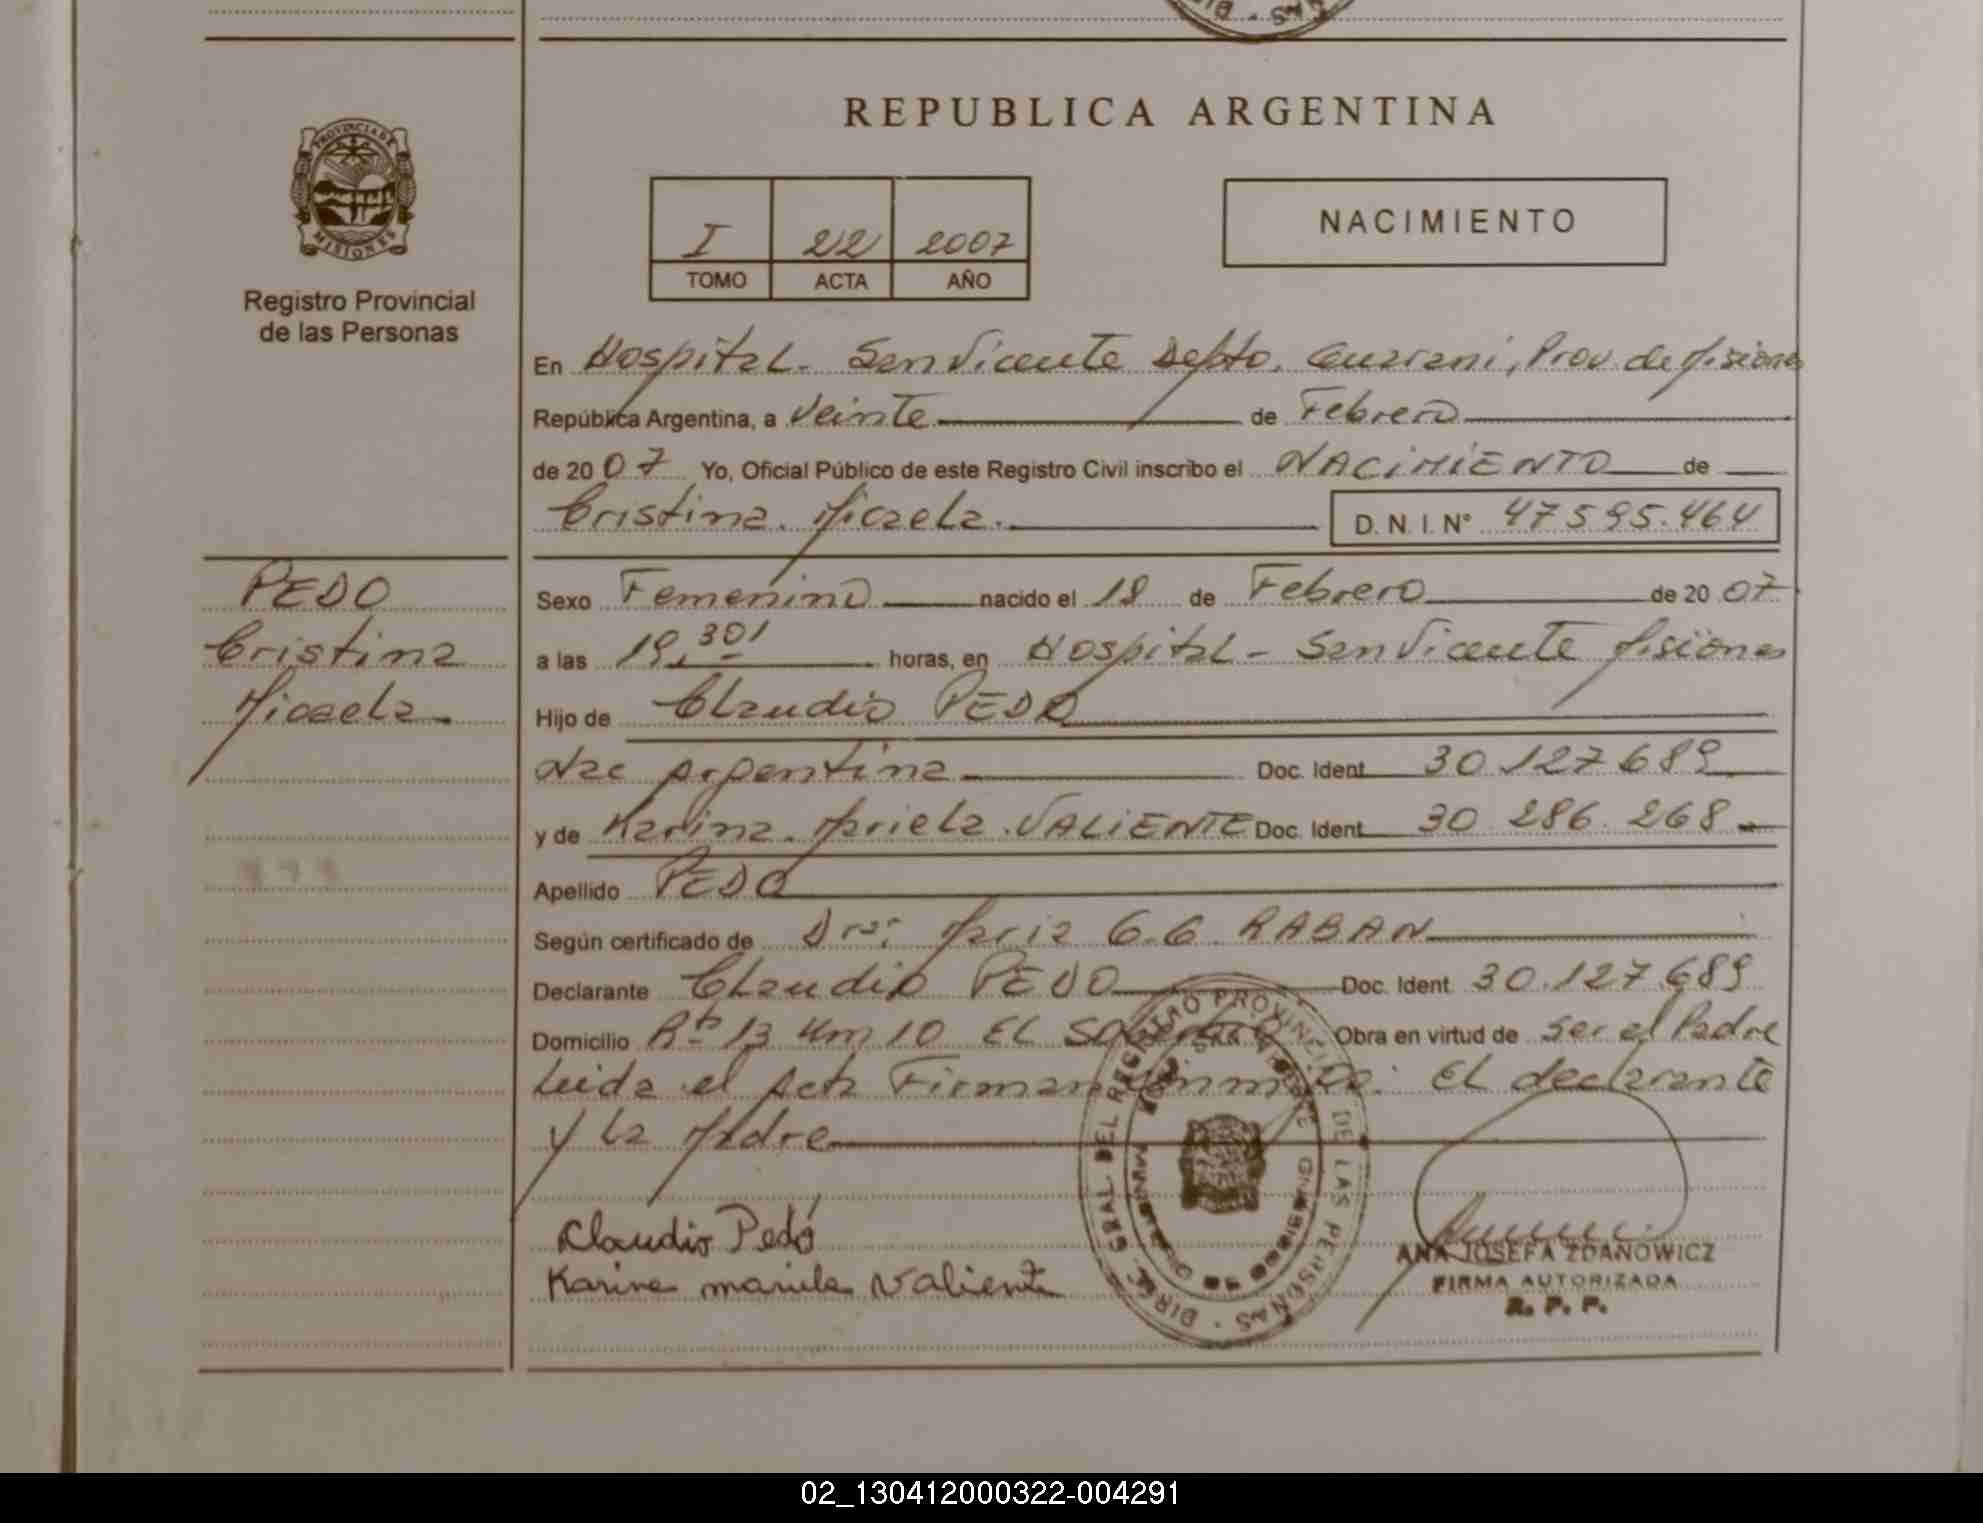 REPUBLICA ARGENTINA
PROVINCIA DE MISIONES
Registro Provincial
de las Personas
I 22 2007
TOMO ACTA AÑO
NACIMIENTO
En Hospital - San Vicente Depto. Guarani, Prov. de Misiones
República Argentina, a Veinte de Febrero
de 2007 Yo, Oficial Público de este Registro Civil inscribo el NACIMIENTO de
Cristina Micaela. D. N. I. N° 47595.464
PEDO
Cristina
Micaela
Sexo Femenino nacido el 18 de Febrero de 2007
a las 19,30 horas, en Hospital - San Vicente Misiones
Hijo de Claudio PEDO
Nac Argentina Doc. Ident 30.127.689
y de Karina Mariela VALIENTE Doc. Ident 30 286.268
Apellido PEDO
Según certificado de Dra: Maria G.G. RABAN
Declarante Claudio PEDO Doc. Ident. 30.127.689
Domicilio Rta 13 Km 10 EL Obra en virtud de ser el Padre
Leida el Acta Firman El declarante
y la Madre
Claudio Pedó
Karina mariela Valiente
DIRC. GRAL DEL REGISTRO PROVINCIAL DE LAS PERSONAS
ANA JOSEFA ZDANOWICZ
FIRMA AUTORIZADA
R. P. P.
02_130412000322-004291